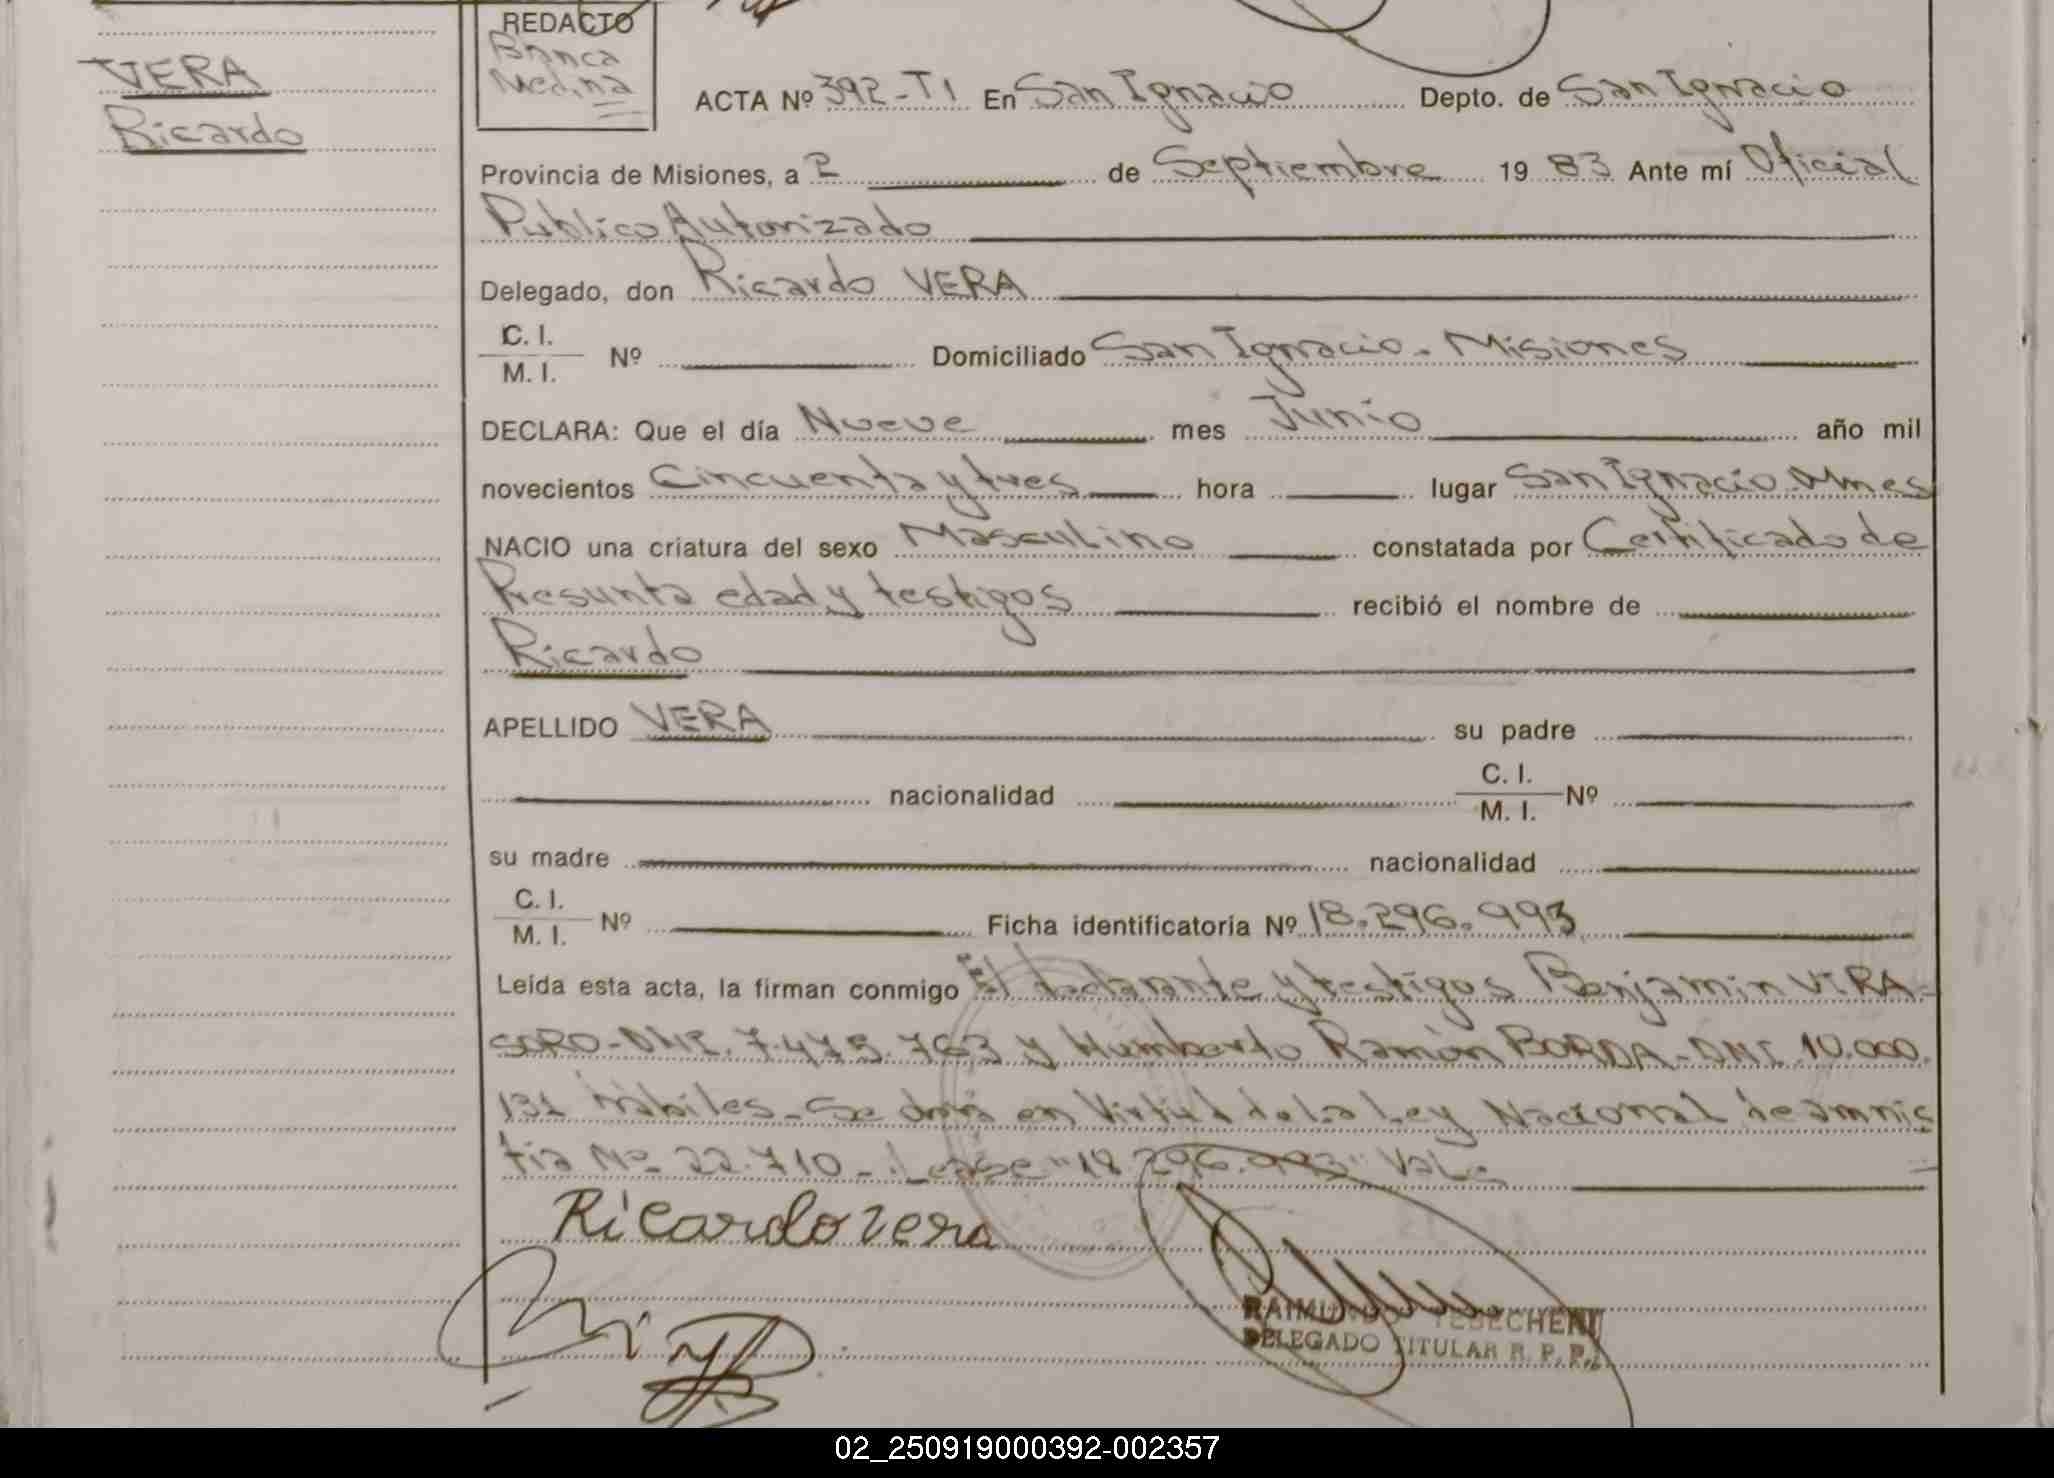 VERA
Ricardo
REDACTO
Blanca
Medina
ACTA Nº 392-T1 En San Ignacio Depto. de San Ignacio
Provincia de Misiones, a 2 de Septiembre 1983 Ante mí Oficial
Publico Autorizado
Delegado, don Ricardo VERA
C. I.
M. I. Nº Domiciliado San Ignacio - Misiones
DECLARA: Que el día Nueve mes Junio año mil
novecientos Cincuenta y tres hora lugar San Ignacio Mnes
NACIO una criatura del sexo Masculino constatada por Certificado de
Presunta edad y testigos recibió el nombre de
Ricardo
APELLIDO VERA su padre
nacionalidad C. I.
M. I. Nº
su madre nacionalidad
C. I.
M. I. Nº Ficha identificatoria Nº 18.296.993
Leída esta acta, la firman conmigo El declarante y testigos Benjamin VIRA-
SORO-DNI. 7.475.763 y Humberto Ramón BORDA-DNI 10.000.
131 hábiles-Se en Virtud de La Ley Nacional de amnis
tia Nº 22.710-Lease "18.296.993" Vale
Ricardo vera
RAIMUNDO YEBECHEN
DELEGADO TITULAR R. P. P.
02_250919000392-002357